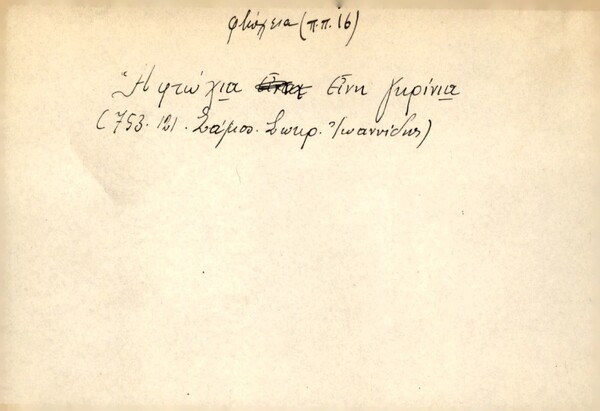 φτώχεια (π.π. 16)
Ἡ φτώχια εἶνη γκρίνια
(753. 121. Σάμος. Σωκρ. Ἰωαννίδης)